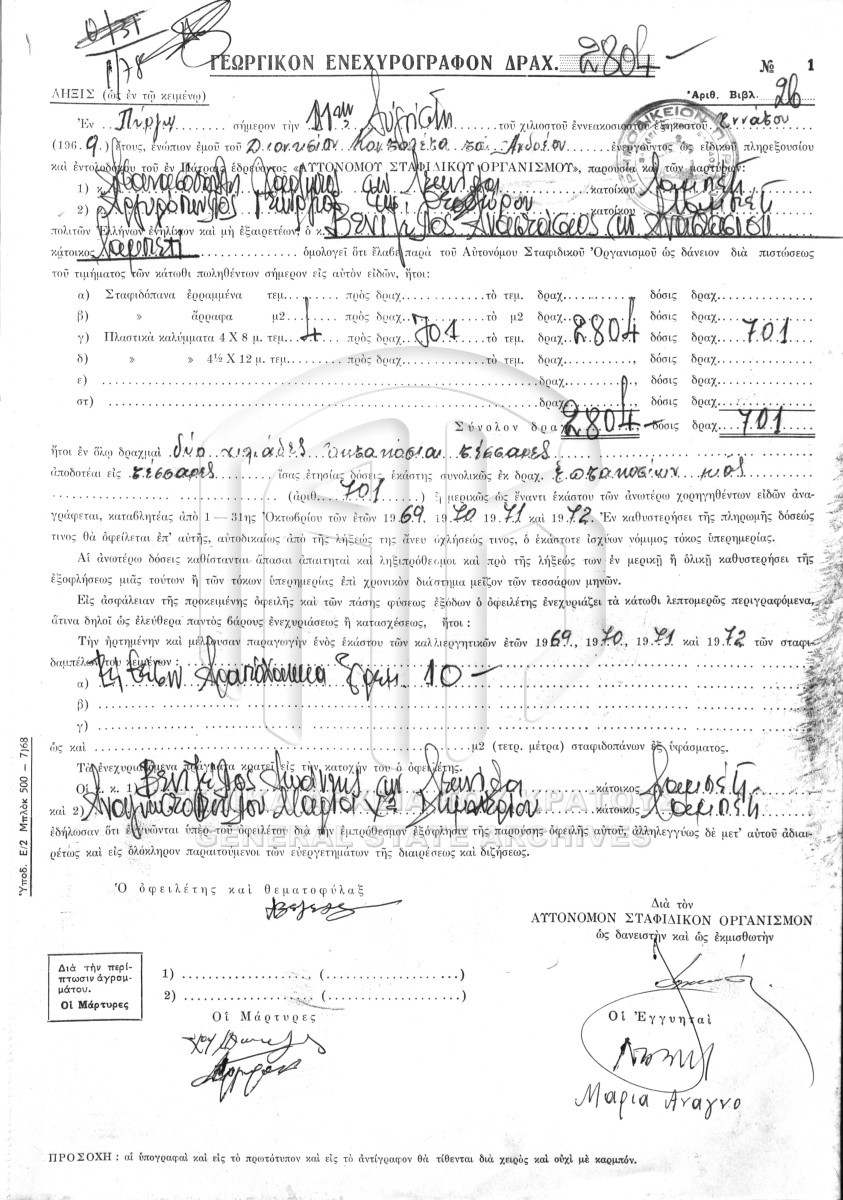 0/31
1/78
ΓΕΩΡΓΙΚΟΝ ΕΝΕΧΥΡΟΓΡΑΦΟΝ ΔΡΑΧ. 2804 —
№ 1
ΛΗΞΙΣ (ὡς ἐν τῷ κειμένῳ)
Ἀριθ. Βιβλ. 26
Ἐν Πύργῳ σήμερον τὴν 11ην τοῦ χιλιοστοῦ ἐννεακοσιοστοῦ ἑξηκοστοῦ ἐννάτου
(1969.) ἔτους, ἐνώπιον ἐμοῦ τοῦ ἐνεργοῦντος ὡς εἰδικοῦ πληρεξουσίου
καὶ ἐντολοδόχου τοῦ ἐν Πάτραις ἑδρεύοντος «ΑΥΤΟΝΟΜΟΥ ΣΤΑΦΙΔΙΚΟΥ ΟΡΓΑΝΙΣΜΟΥ», παρουσίᾳ καὶ τῶν μαρτύρων:
1) κ. κατοίκου
2) Ἀργυρόπουλος Γεώργιος κατοίκου
πολιτῶν Ἑλλήνων ἐνηλίκων καὶ μὴ ἐξαιρετέων, ὁ κ. Βενιζέλος Ἀναστάσιος
κάτοικος ὁμολογεῖ ὅτι ἔλαβε παρὰ τοῦ Αὐτονόμου Σταφιδικοῦ Ὀργανισμοῦ ὡς δάνειον διὰ πιστώσεως
τοῦ τιμήματος τῶν κάτωθι πωληθέντων σήμερον εἰς αὐτὸν εἰδῶν, ἤτοι:
α) Σταφιδόπανα ἐρραμμένα τεμ. πρὸς δραχ. τὸ τεμ. δραχ. δόσις δραχ.
β) » ἄρραφα μ2 πρὸς δραχ. τὸ μ2 δραχ. δόσις δραχ.
γ) Πλαστικὰ καλύμματα 4 Χ 8 μ. τεμ. 4 πρὸς δραχ. 701 τὸ τεμ. δραχ. 2804 δόσις δραχ. 701
δ) » » 4½ Χ 12 μ. τεμ. πρὸς δραχ. τὸ τεμ. δραχ. , δόσις δραχ.
ε) δραχ. , δόσις δραχ.
στ) δραχ. , δόσις δραχ.
Σύνολον δραχ. 2804 — δόσις δραχ. 701
ἤτοι ἐν ὅλῳ δραχμαὶ δύο χιλιάδες ὀκτακόσιαι τέσσαρες
ἀποδοτέαι εἰς τέσσαρες ἴσας ἐτησίας δόσεις ἑκάστης συνολικῶς ἐκ δραχ. ἑπτακοσίων μιᾶς
(ἀριθ. 701 ) ἢ μερικῶς ὡς ἔναντι ἑκάστου τῶν ἀνωτέρω χορηγηθέντων εἰδῶν ἀνα-
γράφεται, καταβλητέας ἀπὸ 1 — 31ης Ὀκτωβρίου τῶν ἐτῶν 1969. 1970 1971 καὶ 1972. Ἐν καθυστερήσει τῆς πληρωμῆς δόσεώς
τινος θὰ ὀφείλεται ἐπ' αὐτῆς, αὐτοδικαίως ἀπὸ τῆς λήξεώς της ἄνευ ὀχλήσεώς τινος, ὁ ἑκάστοτε ἰσχύων νόμιμος τόκος ὑπερημερίας.
Αἱ ἀνωτέρω δόσεις καθίστανται ἅπασαι ἀπαιτηταὶ καὶ ληξιπρόθεσμοι καὶ πρὸ τῆς λήξεώς των ἐν μερικῇ ἢ ὁλικῇ καθυστερήσει τῆς
ἐξοφλήσεως μιᾶς τούτων ἢ τῶν τόκων ὑπερημερίας ἐπὶ χρονικὸν διάστημα μεῖζον τῶν τεσσάρων μηνῶν.
Εἰς ἀσφάλειαν τῆς προκειμένης ὀφειλῆς καὶ τῶν πάσης φύσεως ἐξόδων ὁ ὀφειλέτης ἐνεχυριάζει τὰ κάτωθι λεπτομερῶς περιγραφόμενα,
ἅτινα δηλοῖ ὡς ἐλεύθερα παντὸς βάρους ἐνεχυριάσεως ἢ κατασχέσεως, ἤτοι :
Τὴν ἠρτημένην καὶ μέλλουσαν παραγωγὴν ἑνὸς ἑκάστου τῶν καλλιεργητικῶν ἐτῶν 1969., 1970, 1971 καὶ 1972 τῶν σταφι-
δαμπέλων του κειμένων :
α) Εἰς θέσιν στρεμ. 10 —
β)
γ)
ὡς καὶ μ2 (τετρ. μέτρα) σταφιδοπάνων ἐξ ὑφάσματος.
Τὰ ἐνεχυριαζόμενα πράγματα κρατεῖ εἰς τὴν κατοχήν του ὁ ὀφειλέτης.
Οἱ κ. κ. 1) Βενιζέλος Ἰωάννης κάτοικος
καὶ 2) Ἀναγνωστοπούλου Μαρία Δημητρίου κάτοικος
ΓΕΝΙΚΑ ΑΡΧΕΙΑ ΤΟΥ ΚΡΑΤΟΥΣ
GENERAL STATE ARCHIVES
ἐδήλωσαν ὅτι ἐγγυῶνται ὑπὲρ τοῦ ὀφειλέτου διὰ τὴν ἐμπρόθεσμον ἐξόφλησιν τῆς παρούσης ὀφειλῆς αὐτοῦ, ἀλληλεγγύως δὲ μετ' αὐτοῦ ἀδιαι-
ρέτως καὶ εἰς ὁλόκληρον παραιτούμενοι τῶν εὐεργετημάτων τῆς διαιρέσεως καὶ διζήσεως.
Ὑποδ. Ε/2 Μπλὸκ 500 – 7/68
Ὁ ὀφειλέτης καὶ θεματοφύλαξ
Διὰ τὸν
ΑΥΤΟΝΟΜΟΝ ΣΤΑΦΙΔΙΚΟΝ ΟΡΓΑΝΙΣΜΟΝ
ὡς δανειστὴν καὶ ὡς ἐκμισθωτὴν
Διὰ τὴν περί-
πτωσιν ἀγραμ-
μάτου.
Οἱ Μάρτυρες
1) ( )
2) ( )
Οἱ Μάρτυρες
Οἱ Ἐγγυηταὶ
Μαρία Αναγνο
ΠΡΟΣΟΧΗ : αἱ ὑπογραφαὶ καὶ εἰς τὸ πρωτότυπον καὶ εἰς τὸ ἀντίγραφον θὰ τίθενται διὰ χειρὸς καὶ οὐχὶ μὲ καρμπόν.